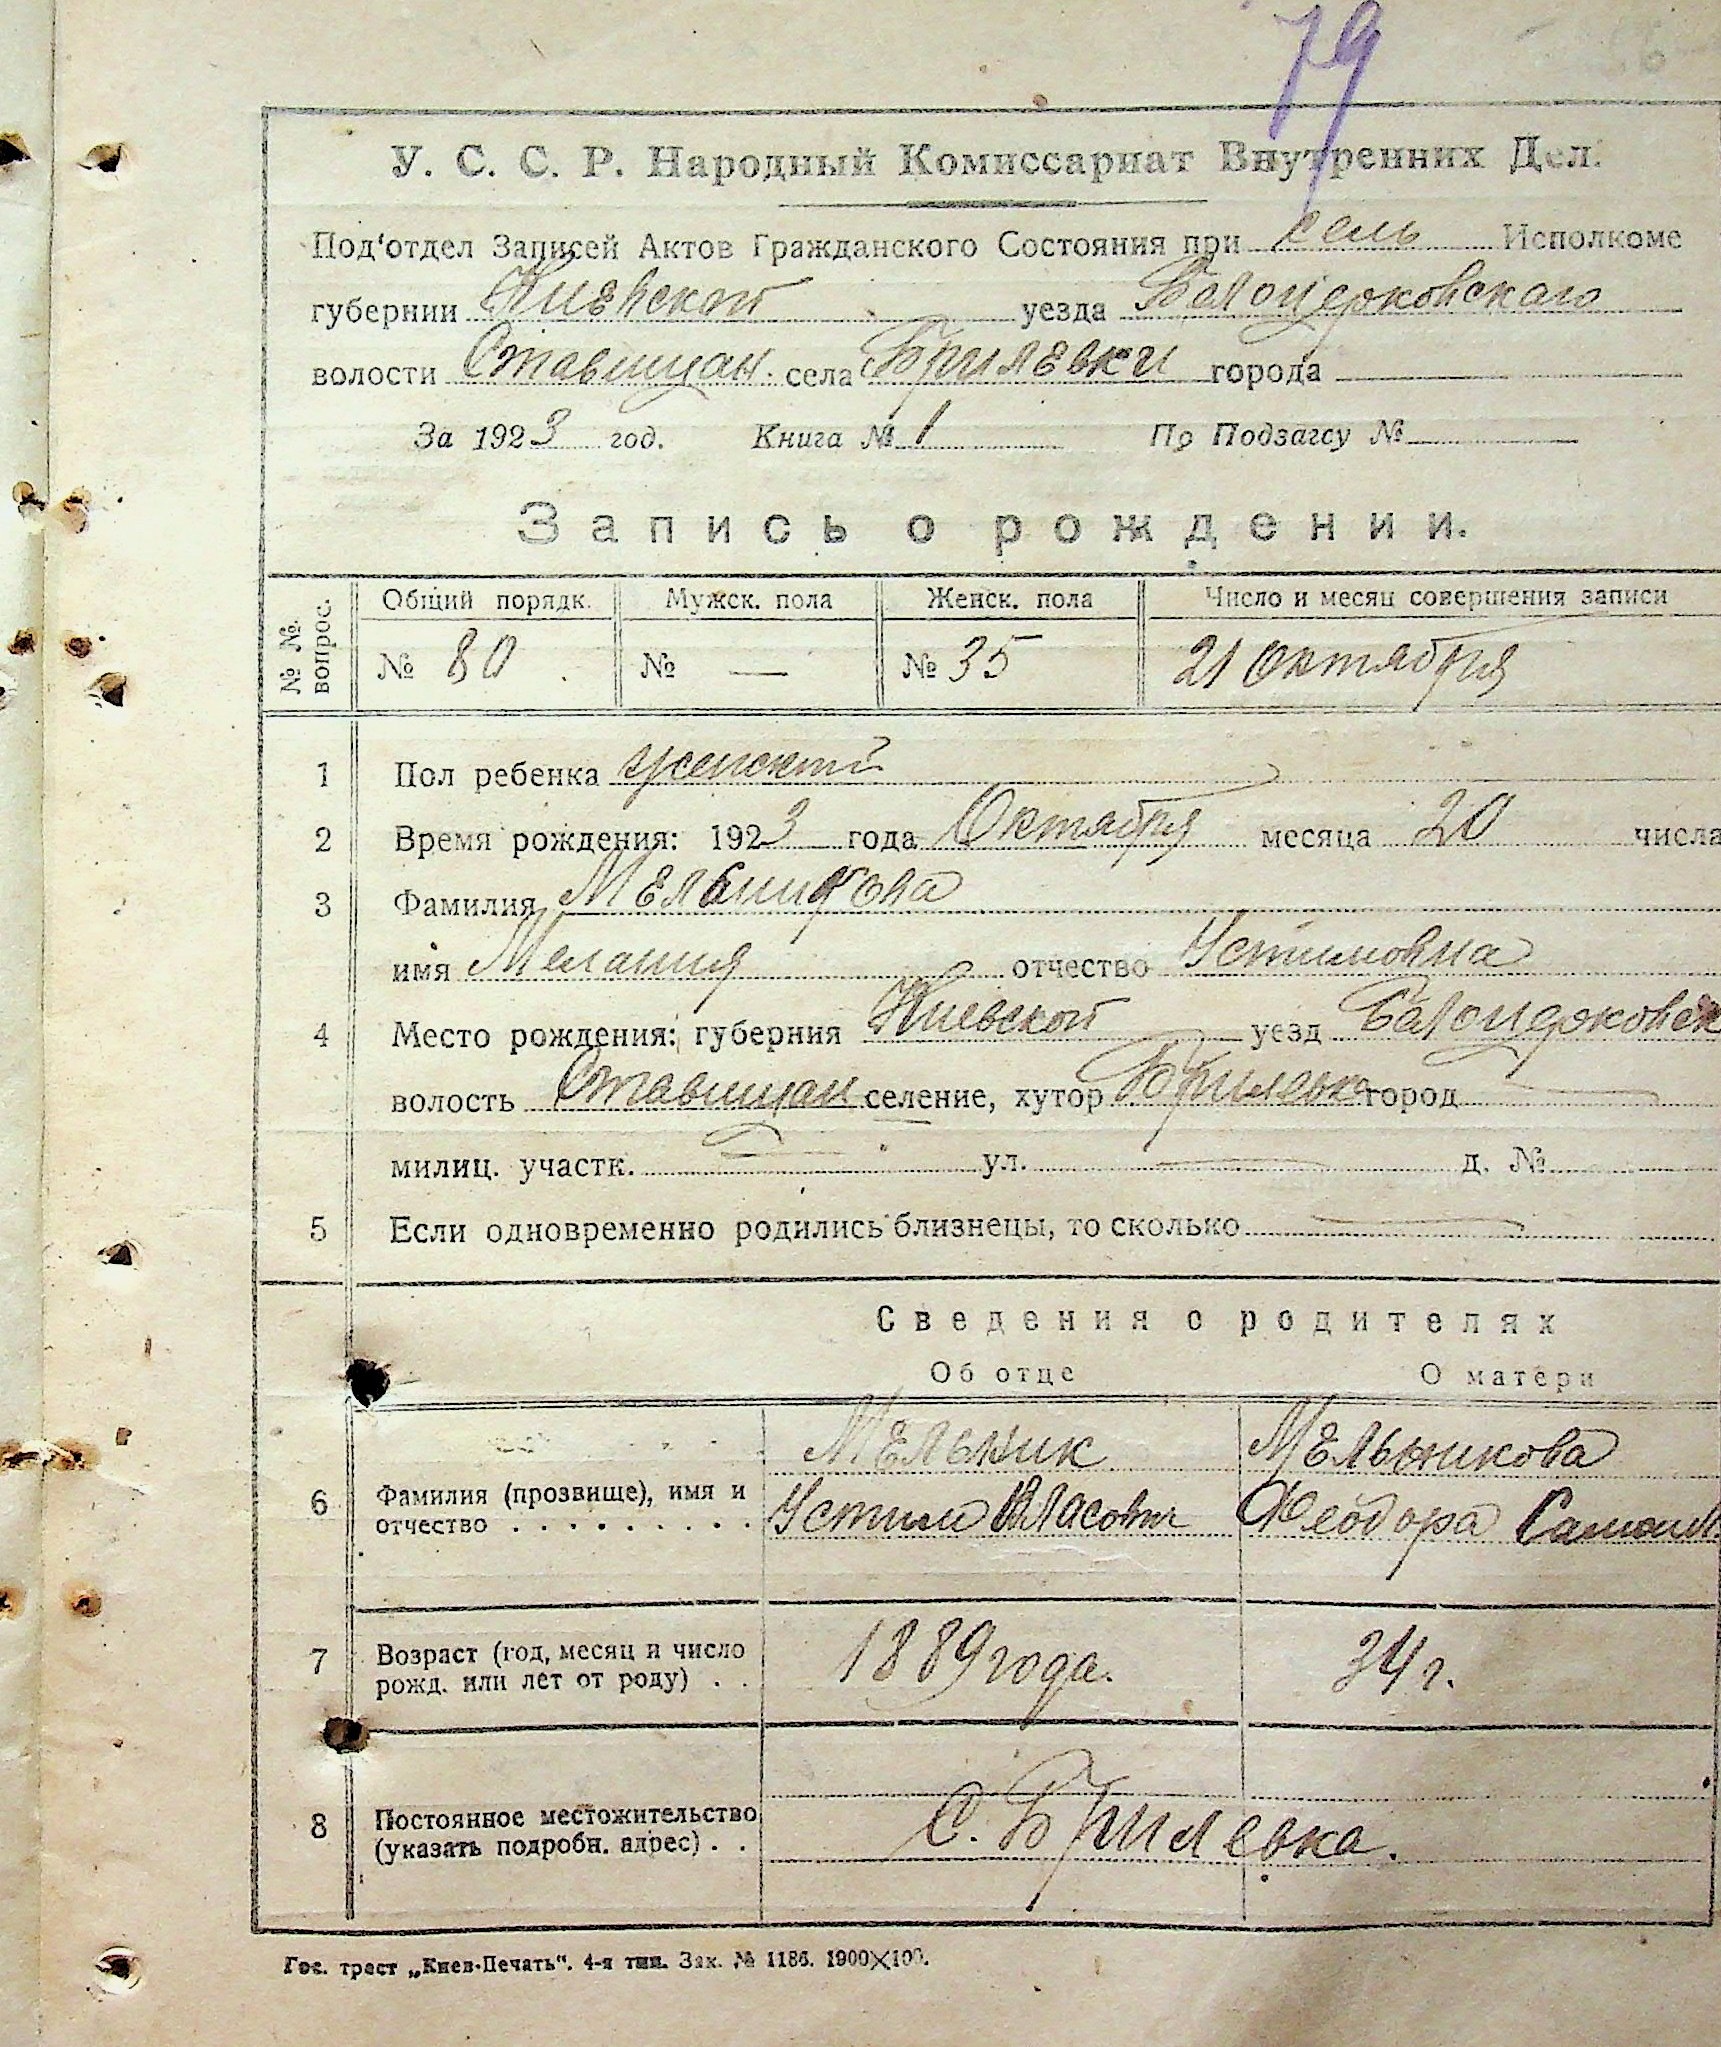 79
У. С. С. Р. Народный Комиссариат Внутренних Дел.
Под'отдел Записей Актов Гражданского Состояния при сель Исполкоме
губернии Киевской уезда Белоцерковскаго
волости Ставищан. села Брилевки города
За 1923 год. Книга № 1 По Подзагсу №
Запись о рождении.
№ №. вопрос. Общий порядк. Мужск. пола Женск. пола Число и месяц совершения записи
№ 80 № — № 35 21 Октября
1 Пол ребенка женский
2 Время рождения: 1923 года Октября месяца 20 числа
3 Фамилия Мельникова
имя Мелания отчество Устимовна
4 Место рождения: губерния Киевской уезд Белоцерковск
волость Ставищан селение, хутор Брилевк город
милиц. участк. ул. д. №
5 Если одновременно родились близнецы, то сколько
Сведения о родителях
Об отце О матери
Мельник Мельникова
6 Фамилия (прозвище), имя и отчество . . . . . . . . . Устим Власович Феодора
7 Возраст (год, месяц и число рожд. или лет от роду) . . 1889 года. 34 г.
8 Постоянное местожительство (указать подробн. адрес) . . С. Брилевка.
Гос. трест „Киев-Печать“. 4-я тип. Зак. № 1186. 1900×100.